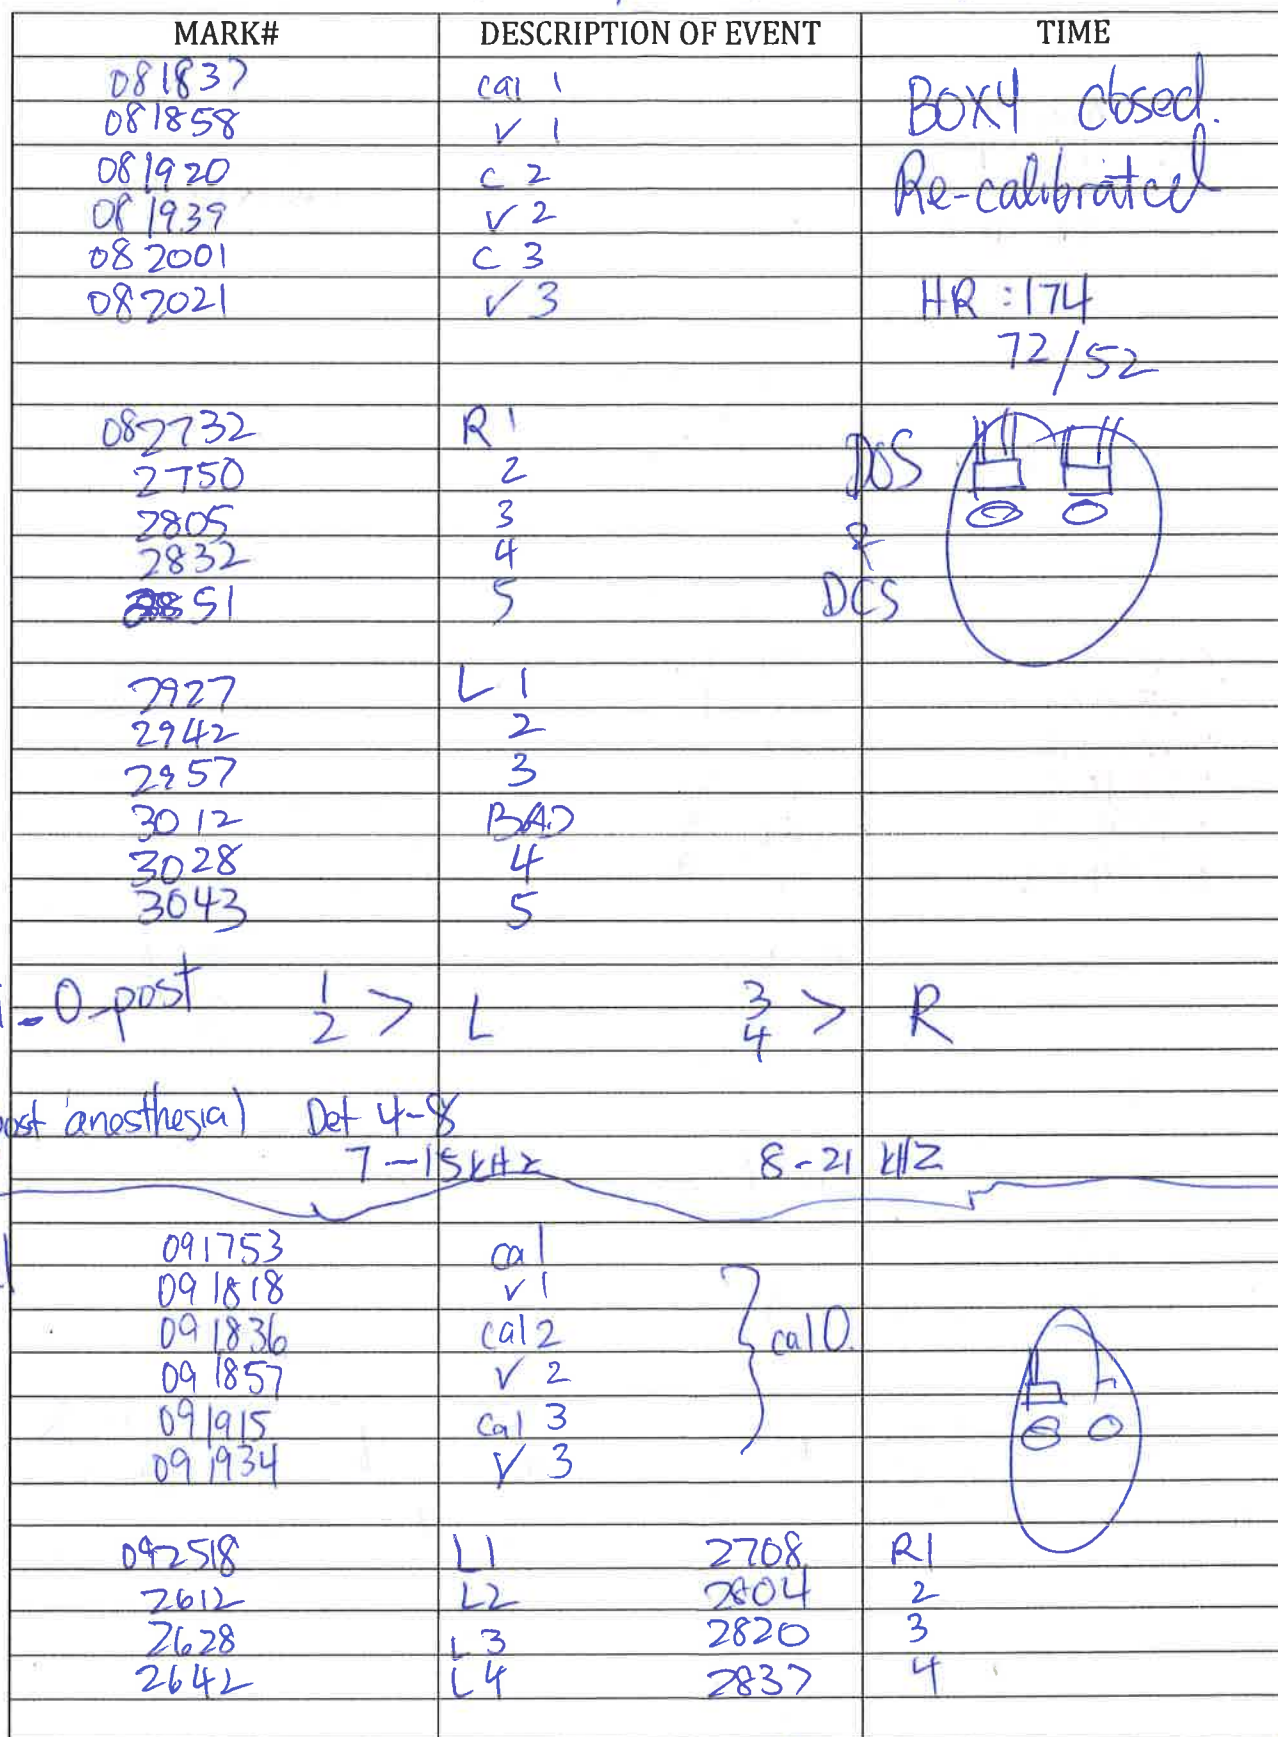 MARK# DESCRIPTION OF EVENT TIME
081837 cal 1
081858 v 1 BOXY closed.
081920 c 2 Re-calibrated
081939 v 2
082001 c 3
082021 v 3 HR : 174
72/52
082732 R 1
2750 2 DOS
2805 3
2832 4 &
2851 5 DCS
2927 L 1
2942 2
2957 3
3012 BAD
3028 4
3043 5
_0-post 1 2 > L 3 4 > R
post anesthesia) Det 4-8
7-15 kHz 8-21 kHZ
091753 cal
091818 v 1
091836 cal 2 cal 0.
091857 v 2
091915 cal 3
091934 v 3
092518 L1 2708 R1
2612 L2 2804 2
2628 L3 2820 3
2642 L4 2837 4